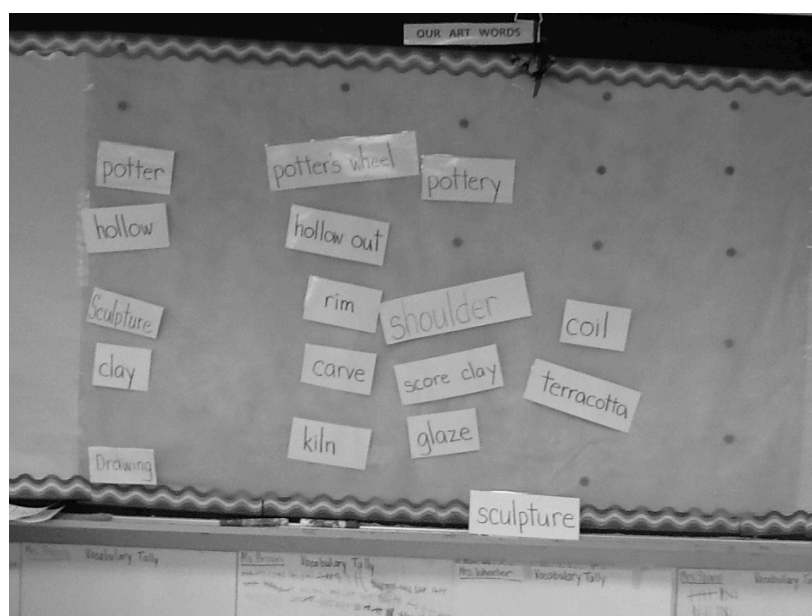 OUR ART WORDS
potter
potter's wheel
pottery
hollow
hollow out
Sculpture
rim
shoulder
coil
clay
carve
score clay
terracotta
Drawing
kiln
glaze
sculpture
Vocabulary Tally
Ms. Brown Vocabulary Tally
Mrs. Wheeler Vocabulary Tally
Vocabulary Tally